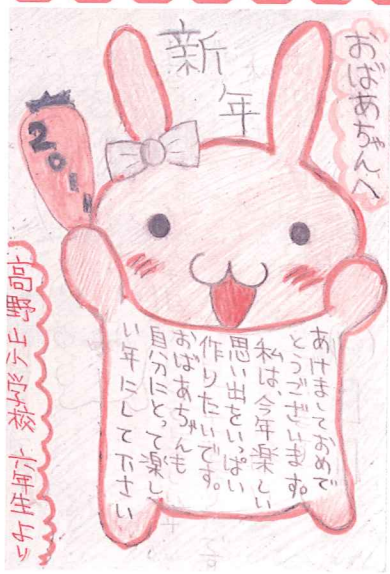 おばあちゃんへ
新年
2011
あけましておめで
とうございます。
私は、今年楽しい
思い出をいっぱい
作りたいです。
おばあちゃんも
自分にとって楽し
い年にして下さい
高野山小学校 六年生より